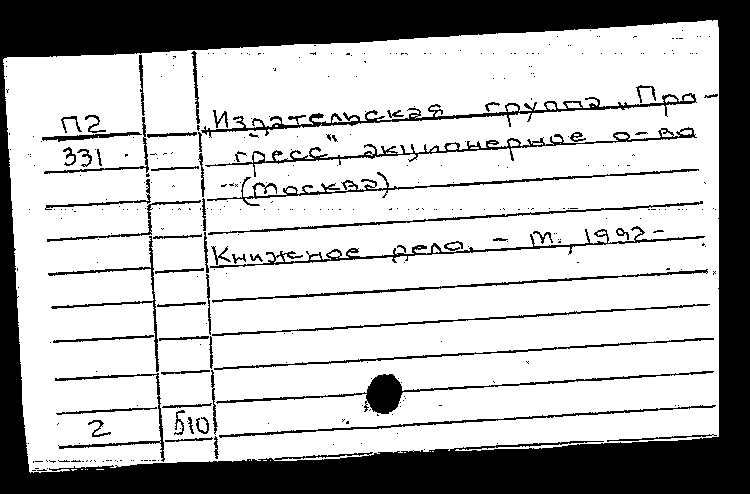 П2
331
„Издательская группа „Про-
гресс", акционерное о-во
(Москва).
Книжное дело. - М., 1992-
2
Б10